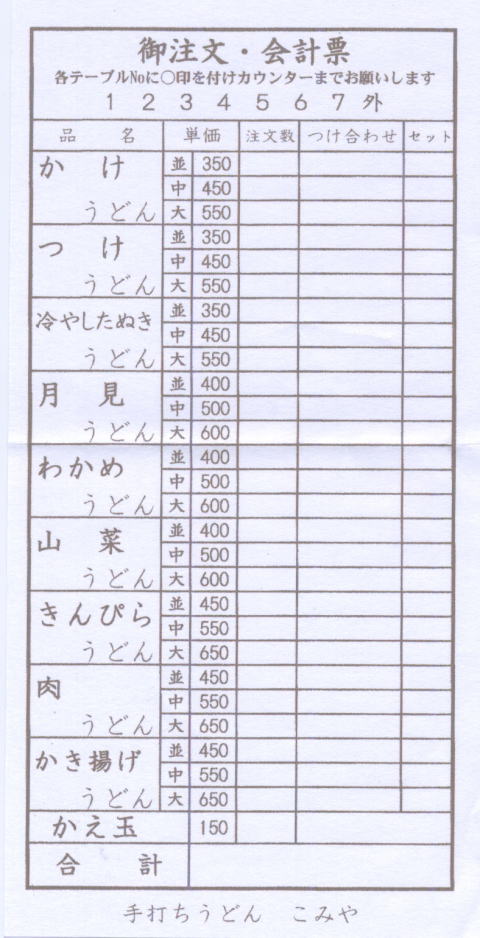 御注文・会計票
各テーブルNoに〇印を付けカウンターまでお願いします
1 2 3 4 5 6 7 外
品 名 単価 注文数 つけ合わせ セット
かけ 並 350
中 450
うどん 大 550
つけ 並 350
中 450
うどん 大 550
冷やしたぬき 並 350
中 450
うどん 大 550
月見 並 400
中 500
うどん 大 600
わかめ 並 400
中 500
うどん 大 600
山菜 並 400
中 500
うどん 大 600
きんぴら 並 450
中 550
うどん 大 650
肉 並 450
中 550
うどん 大 650
かき揚げ 並 450
中 550
うどん 大 650
かえ玉 150
合計
手打ちうどん こみや